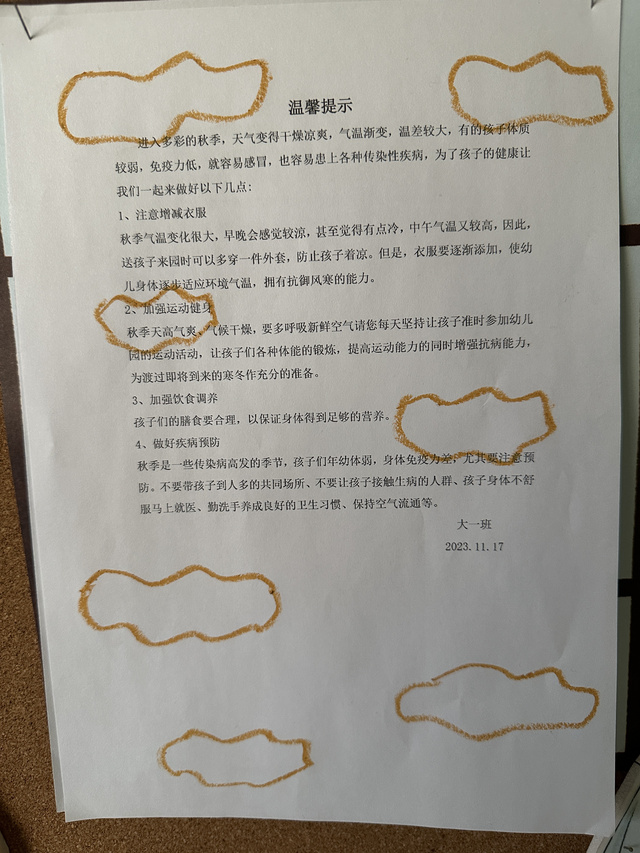 温馨提示
进入多彩的秋季，天气变得干燥凉爽，气温渐变，温差较大，有的孩子体质
较弱，免疫力低，就容易感冒，也容易患上各种传染性疾病，为了孩子的健康让
我们一起来做好以下几点：
1、注意增减衣服
秋季气温变化很大，早晚会感觉较凉，甚至觉得有点冷，中午气温又较高，因此，
送孩子来园时可以多穿一件外套，防止孩子着凉。但是，衣服要逐渐添加，使幼
儿身体逐步适应环境气温，拥有抗御风寒的能力。
2、加强运动健身
秋季天高气爽，气候干燥，要多呼吸新鲜空气请您每天坚持让孩子准时参加幼儿
园的运动活动，让孩子们各种体能的锻炼，提高运动能力的同时增强抗病能力，
为渡过即将到来的寒冬作充分的准备。
3、加强饮食调养
孩子们的膳食要合理，以保证身体得到足够的营养。
4、做好疾病预防
秋季是一些传染病高发的季节，孩子们年幼体弱，身体免疫力差，尤其要注意预
防。不要带孩子到人多的共同场所、不要让孩子接触生病的人群、孩子身体不舒
服马上就医、勤洗手养成良好的卫生习惯、保持空气流通等。
大一班
2023.11.17